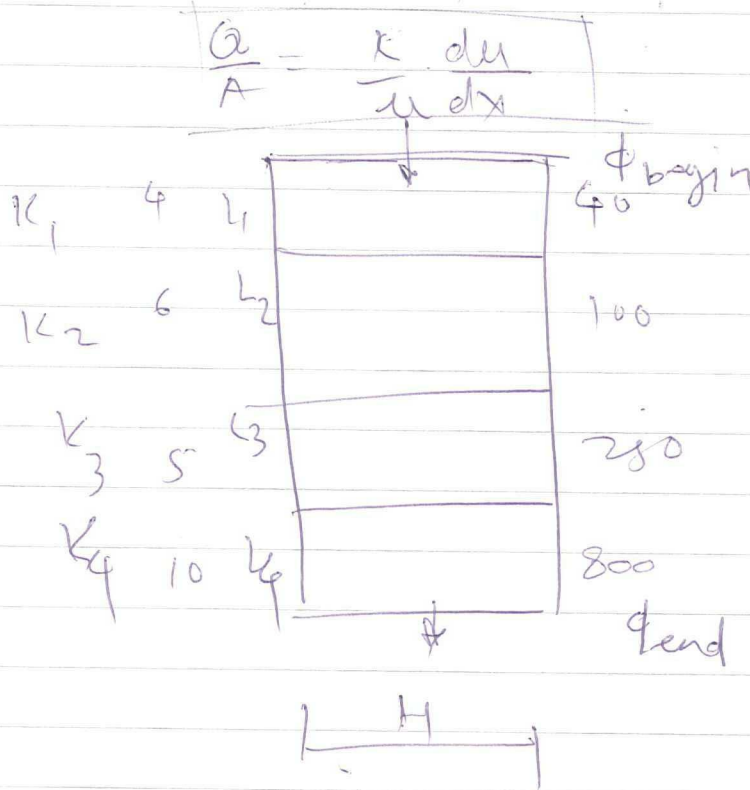 Q/A = K/μ · du/dx
ϕ begin
K1 4 L1 40
K2 6 L2 100
K3 5 L3 250
K4 10 L4 800
ϕ end
H